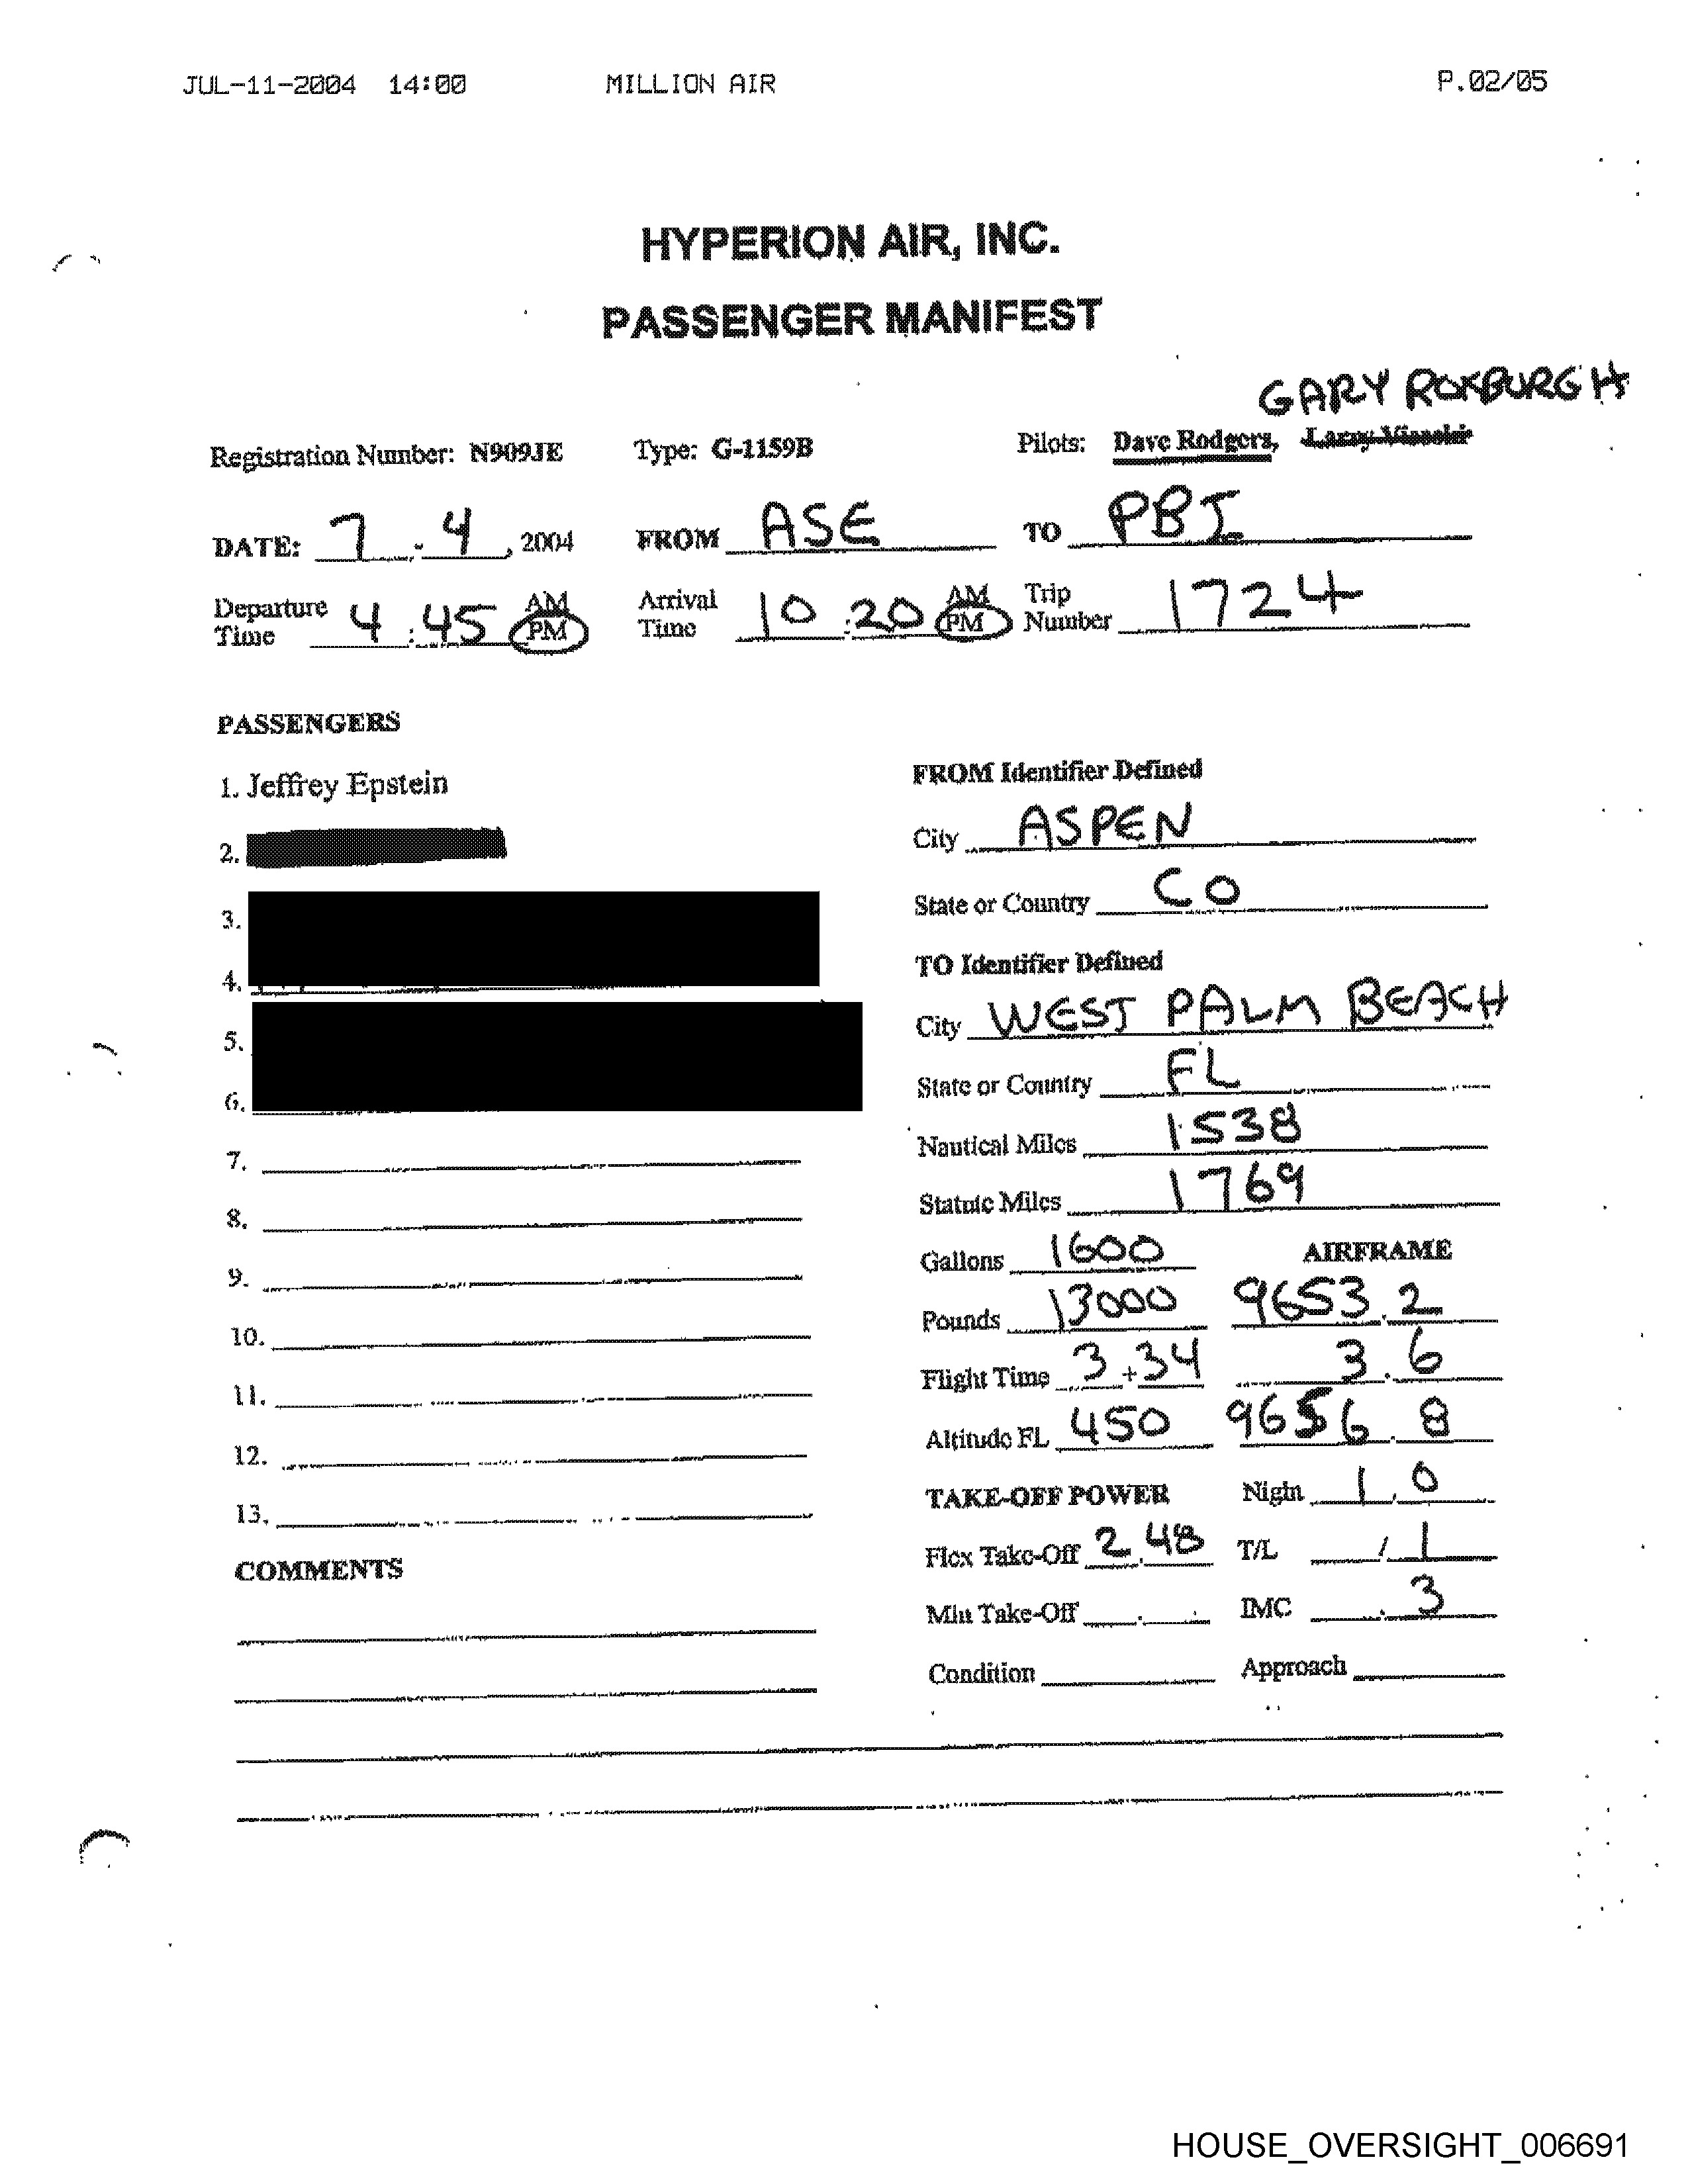 JUL-11-2004 14:00 MILLION AIR P.02/05
HYPERION AIR, INC.
PASSENGER MANIFEST
GARY ROXBURGH
Registration Number: N909JE Type: G-1159B Pilots: Dave Rodgers, Larry Visoski
DATE: 7 - 4, 2004 FROM ASE TO PBI
Departure Time 4:45 AM PM Arrival Time 10:20 AM PM Trip Number 1724
PASSENGERS
1. Jeffrey Epstein
2.
3.
4.
5.
6.
7.
8.
9.
10.
11.
12.
13.
COMMENTS
FROM Identifier Defined
City ASPEN
State or Country CO
TO Identifier Defined
City WEST PALM BEACH
State or Country FL
Nautical Miles 1538
Statute Miles 1769
Gallons 1600 AIRFRAME
Pounds 13000 9653.2
Flight Time 3+34 3.6
Altitude FL 450 9656.8
TAKE-OFF POWER Night 1.0
Flex Take-Off 2.48 T/L / 1
Min Take-Off . IMC .3
Condition Approach
HOUSE_OVERSIGHT_006691